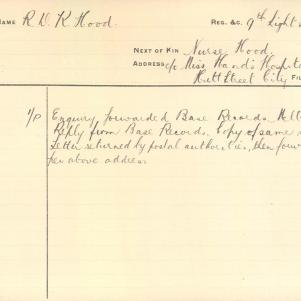 NAME R. D. K Hood. REG. &C. 9th Light
NEXT OF KIN Nurse Hood.
ADDRESS c/o Miss Hand's Hospital
Hutt Street City FI
Enquiry forwarded Base Records
Reply from Base Records. Copy of same
Letter returned by postal authorities, then
above address.